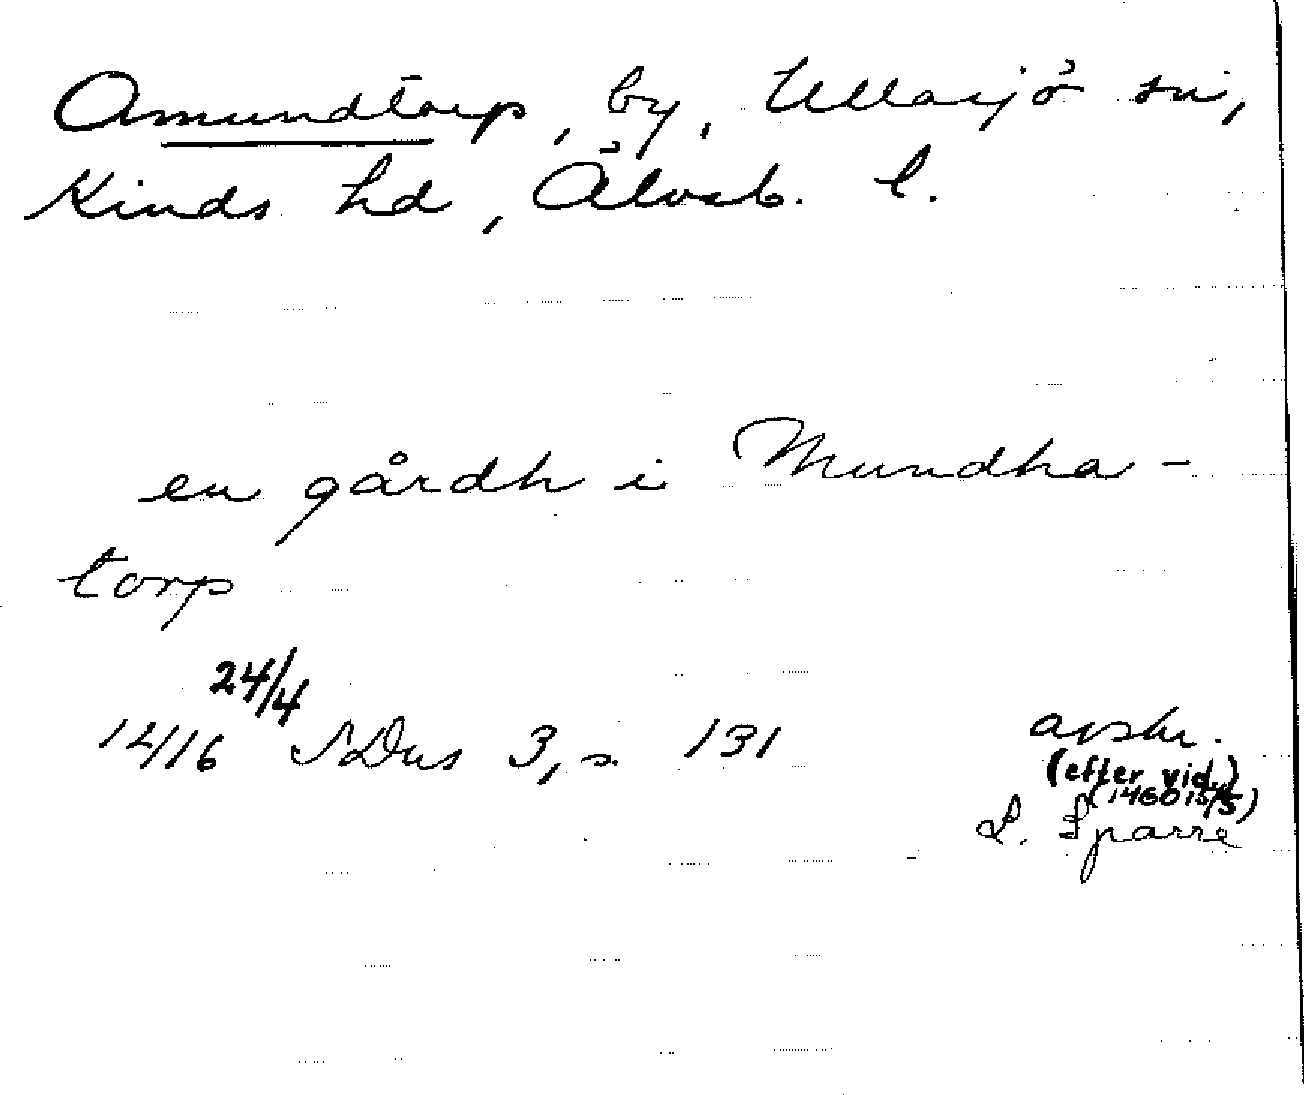 Amundtorp, by, Ullasjö sn,
Kinds hd, Älvsb. l.
en gårdh i Mundha-
torp
1416 24/4 SDns 3, s. 131
avskr.
(efter vid.)
(1460 15/5)
L. Sparre